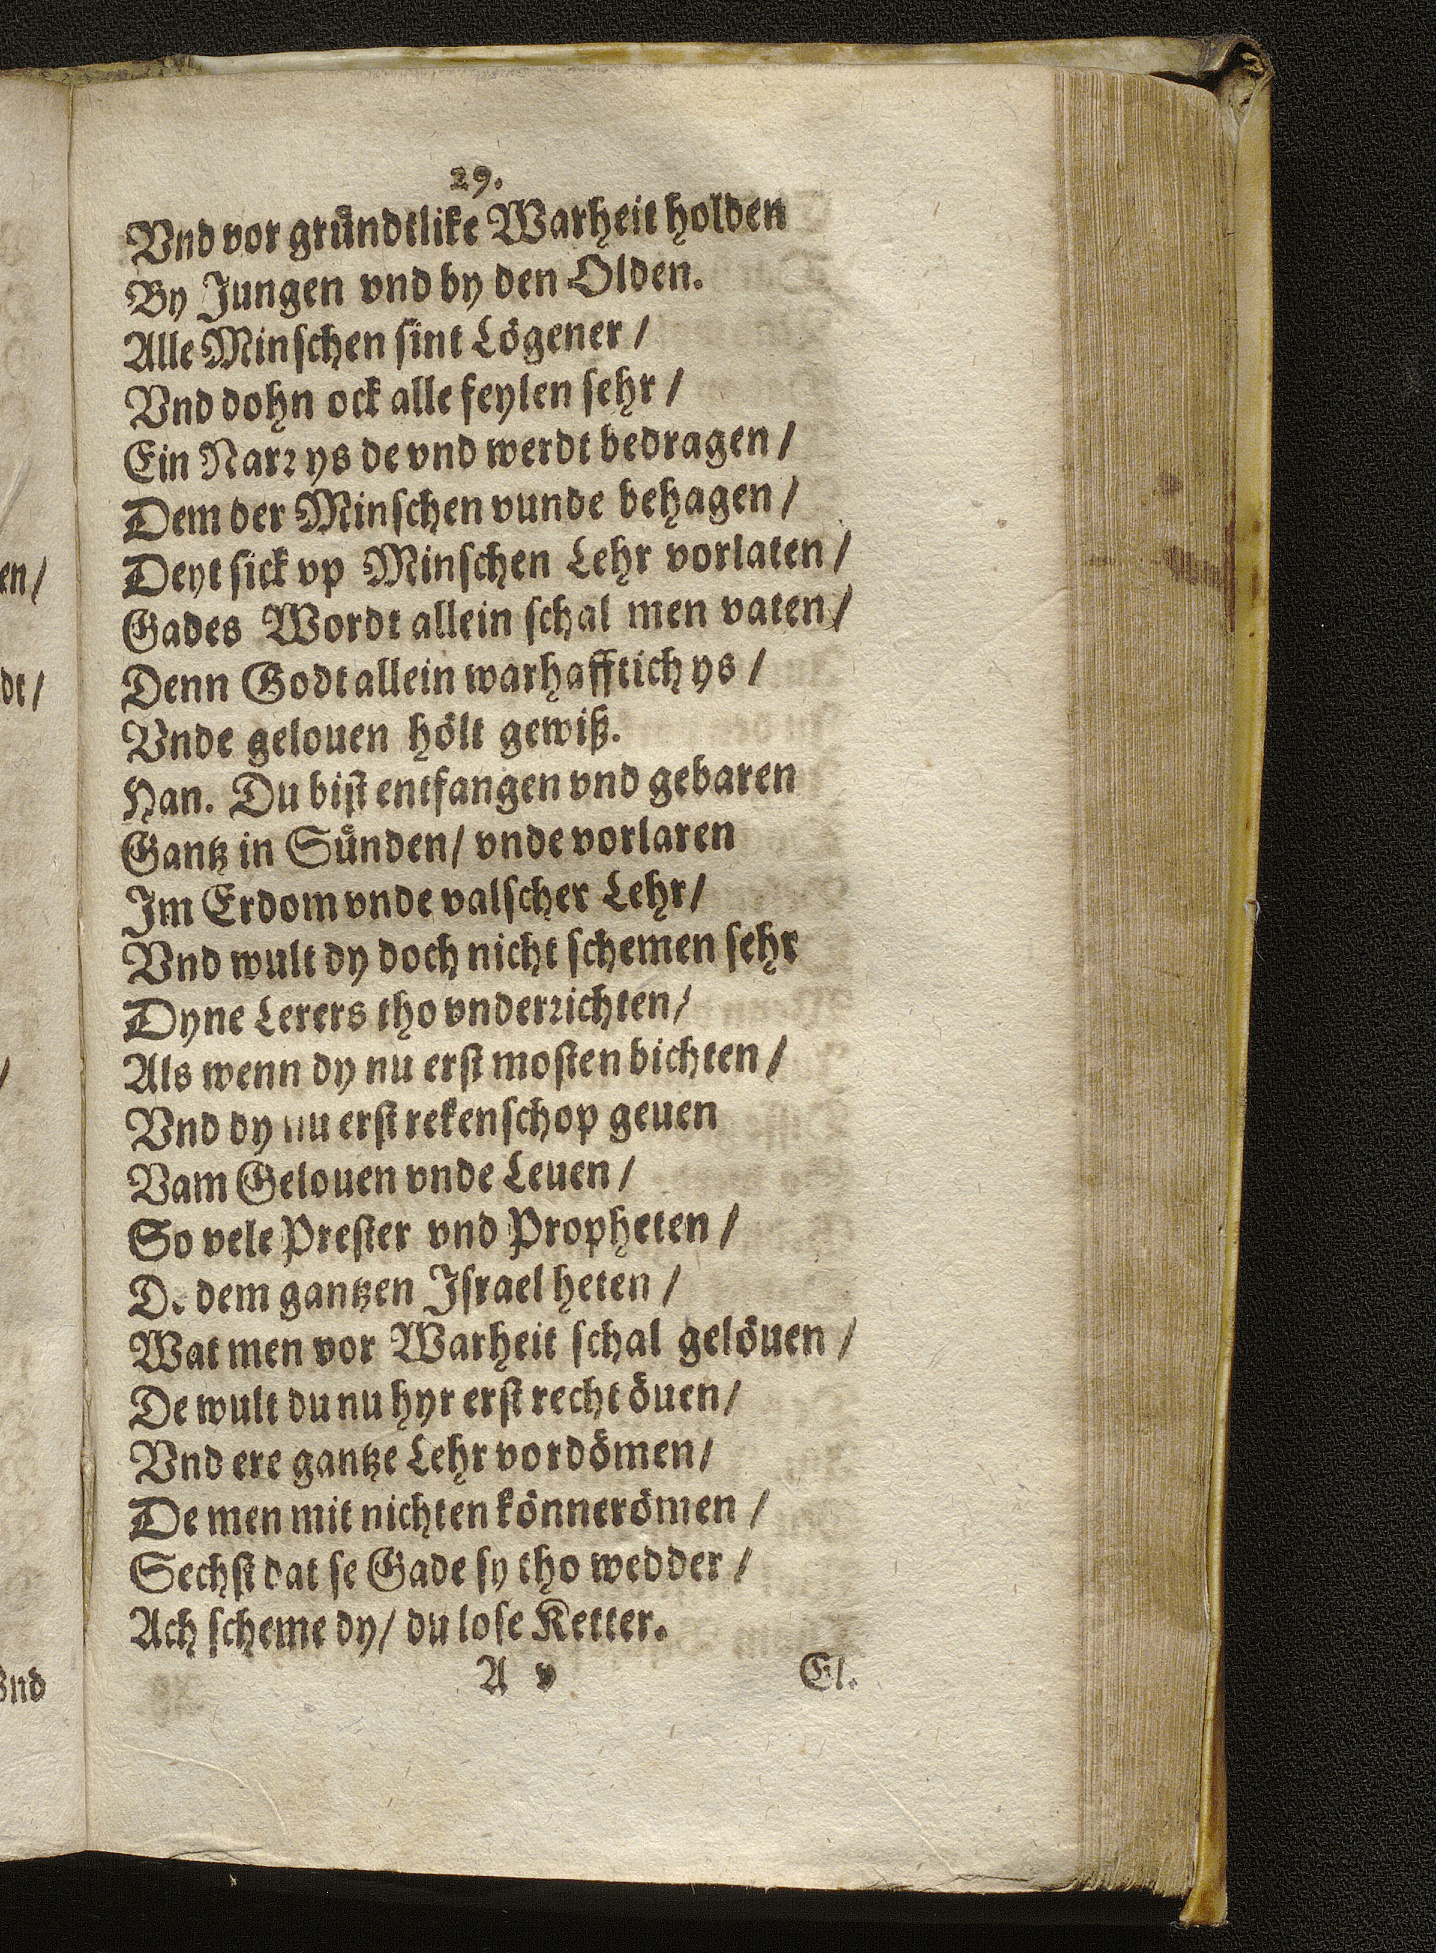 29.
Vnd vor gruͤndtlike Warheit holden
By Jungen vnd by den Olden.
Alle Minſchen ſint Loͤgener /
Vnd dohn ock alle feylen ſehr /
Ein Narꝛ ys de vnd werdt bedragen /
Dem der Minſchen vunde behagen /
Deyt ſick vp Minſchen Lehr vorlaten /
Gades Wordt allein ſchal men vaten /
Denn Godt allein warhafftich ys /
Vnde gelouen hoͤlt gewiß.
Han. Du biſt entfangen vnd gebaren
Gantz in Suͤnden / vnde vorlaren
Im Erdom vnde valſcher Lehr /
Vnd wult dy doch nicht ſchemen ſehr
Dyne Lerers tho vnderꝛichten /
Als wenn dy nu erſt moſten bichten /
Vnd dy nu erſt rekenſchop geuen
Vam Gelouen vnde Leuen /
So vele Preſter vnd Propheten /
De dem gantzen Iſrael heten /
Wat men vor Warheit ſchal geloͤuen /
De wult du nu hyr erſt recht oͤuen /
Vnd ere gantze Lehr vordoͤmen /
De men mit nichten koͤnne roͤmen /
Sechſt dat ſe Gade ſy tho wedder /
Ach ſcheme dy / du loſe Ketter.
A v El.
en /
dt /
/
Vnd